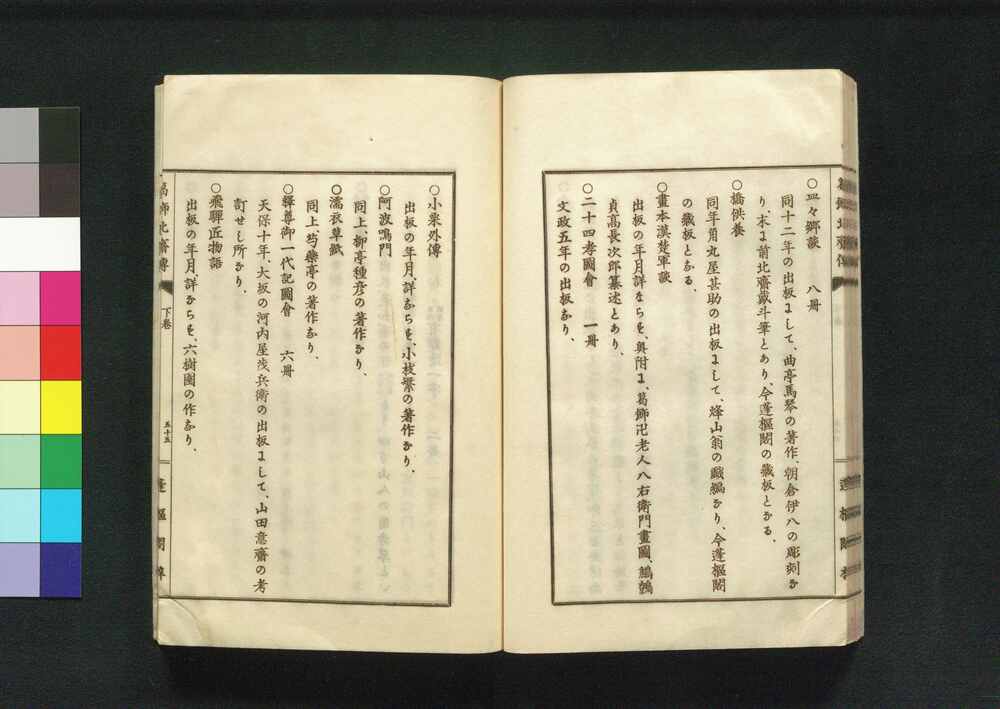 ○皿々郷談　八冊
同十二年の出板にして、曲亭馬琴の著作、朝倉伊八の彫刻な
り末に前北齋戴斗筆とあり、今蓬樞閣の藏板となる、
○橋供養
同年角丸屋甚助の出板にして、烽山翁の戲編なり、今蓬樞閣
の藏板となる、
○畫本漢楚軍談
出板の年月詳ならず、奥附に、葛飾卍老人八右衛門畫圖、鶴鶉
貞高長次郎纂述とあり、
○二十四孝圖會　一冊
文政五年の出板なり、
○小栗外傳
出板の年月、詳ならず、小枝繁の著作なり、
○阿波鳴門
同上、柳亭種彦の著作なり、
○濡衣草紙
同上、芍藥亭の著作なり、
○釋尊御一代記圖會　六冊
天保十年、大坂の河内屋茂兵衛の出板にして、山田意齋の考
訂せし所なり、
○飛驒匠物語
出板の年月、詳ならず、六樹園の作なり、
葛飾北齋傳
下卷
五十五
蓬樞閣梓